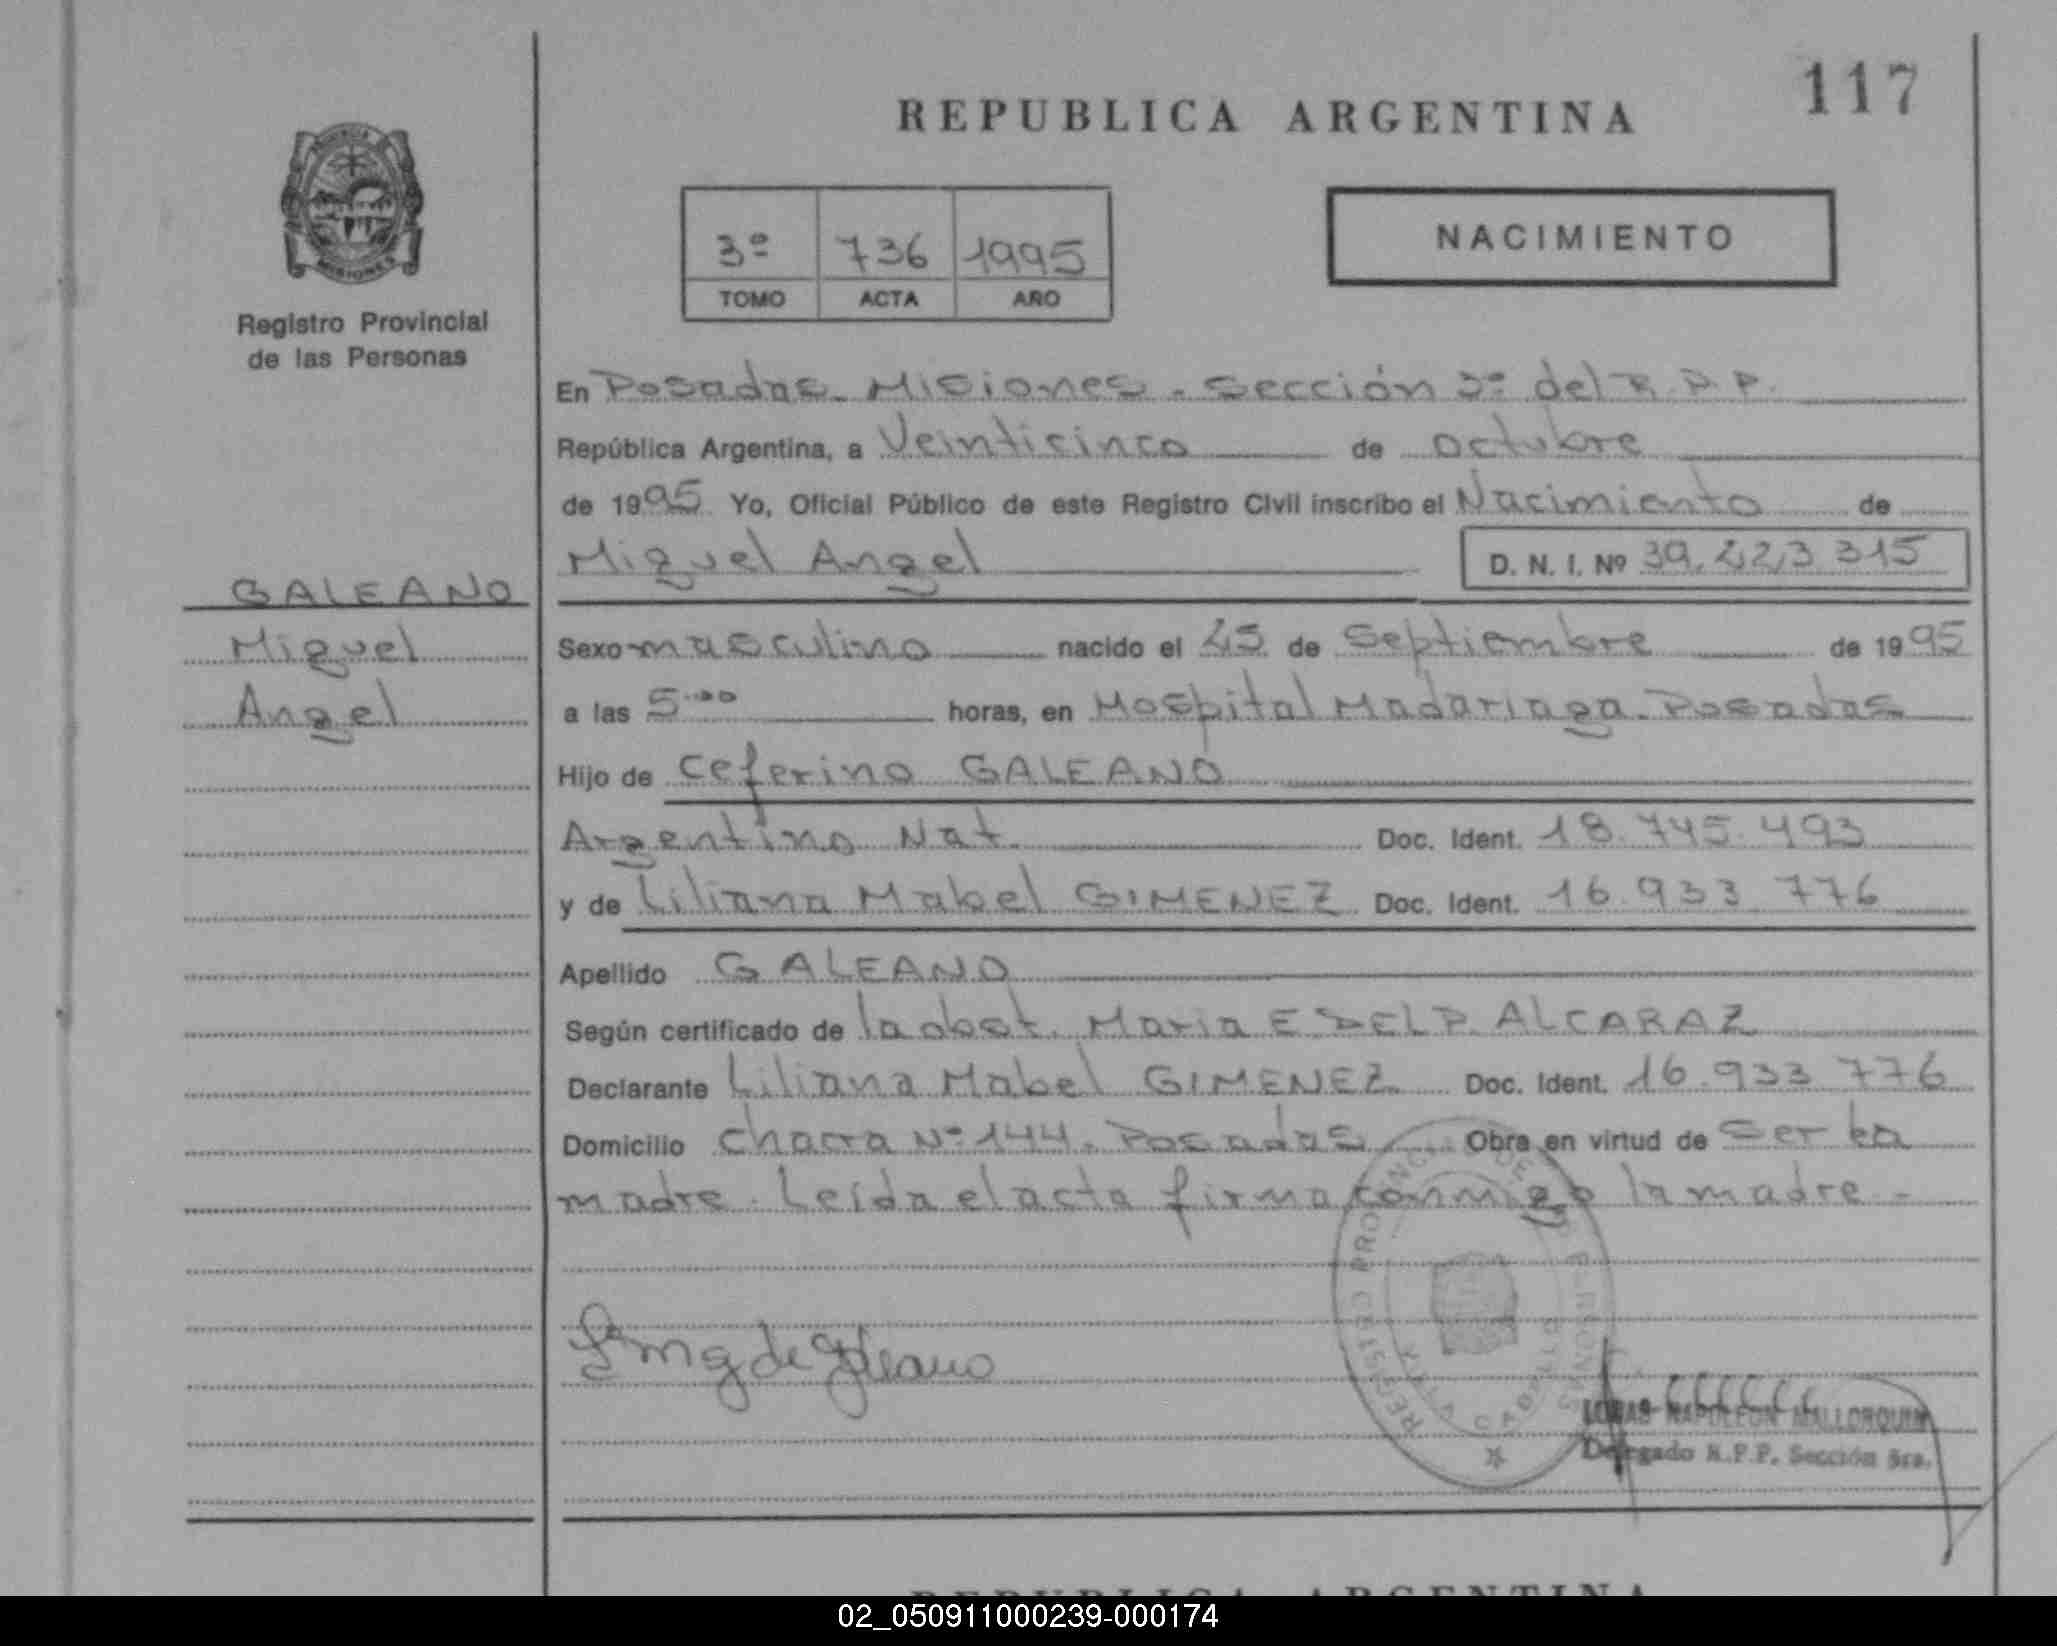 117
REPUBLICA ARGENTINA
PROVINCIA
MISIONES
Registro Provincial
de las Personas
NACIMIENTO
3º 736 1995
TOMO ACTA AÑO
En Posadas. Misiones. Sección 3º del R.P.P.
República Argentina, a Veinticinco de octubre
de 1995 Yo, Oficial Público de este Registro Civil inscribo el Nacimiento de
Miguel Angel D. N. I. Nº 39.223.315
GALEANO
Miguel
Angel
Sexo masculino nacido el 25 de Septiembre de 1995
a las 5.00 horas, en Hospital Madariaga. Posadas
Hijo de Ceferino GALEANO
Argentino Nat. Doc. Ident. 18.745.493
y de Liliana Mabel GIMENEZ Doc. Ident. 16.933 776
Apellido GALEANO
Según certificado de la obst. Maria E DEL P. ALCARAZ
Declarante Liliana Mabel GIMENEZ Doc. Ident. 16.933 776
Domicilio Chacra Nº 144. Posadas Obra en virtud de ser la
madre. Leída el acta firma conmigo la madre.-
de Galeano
REGISTRO PROVINCIAL DE LAS PERSONAS
LUCAS NAPOLEON MALLORQUIN
Delegado R.P.P. Sección 3ra.
REPUBLICA ARGENTINA
02_050911000239-000174